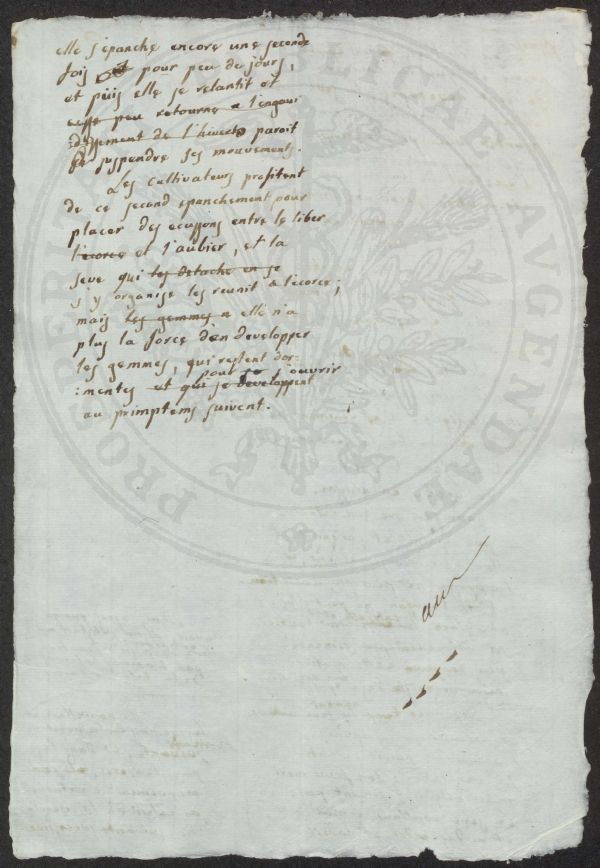 elle s'epanche encore une seconde
fois et pour peu de jours,
et puis elle se relantit et
peu retourne a l'engour
dissement de l'hiver paroit
suspendre ses mouvements.
Les cultivateurs profitent
de ce second epanchement pour
placer des ecussons entre le liber
l'ecorce et l'aubier, et la
seve qui les detache en se
s'y organise les reunit a l'ecorce;
mais les gemmes n elle n'a
plus la force d'en developper
les gemmes, qui restent dor:
pour s'ouvrir
:mentes et qui se developpent
au primptems suivent.
PROSPERITATI PUBLICAE AVGENDAE